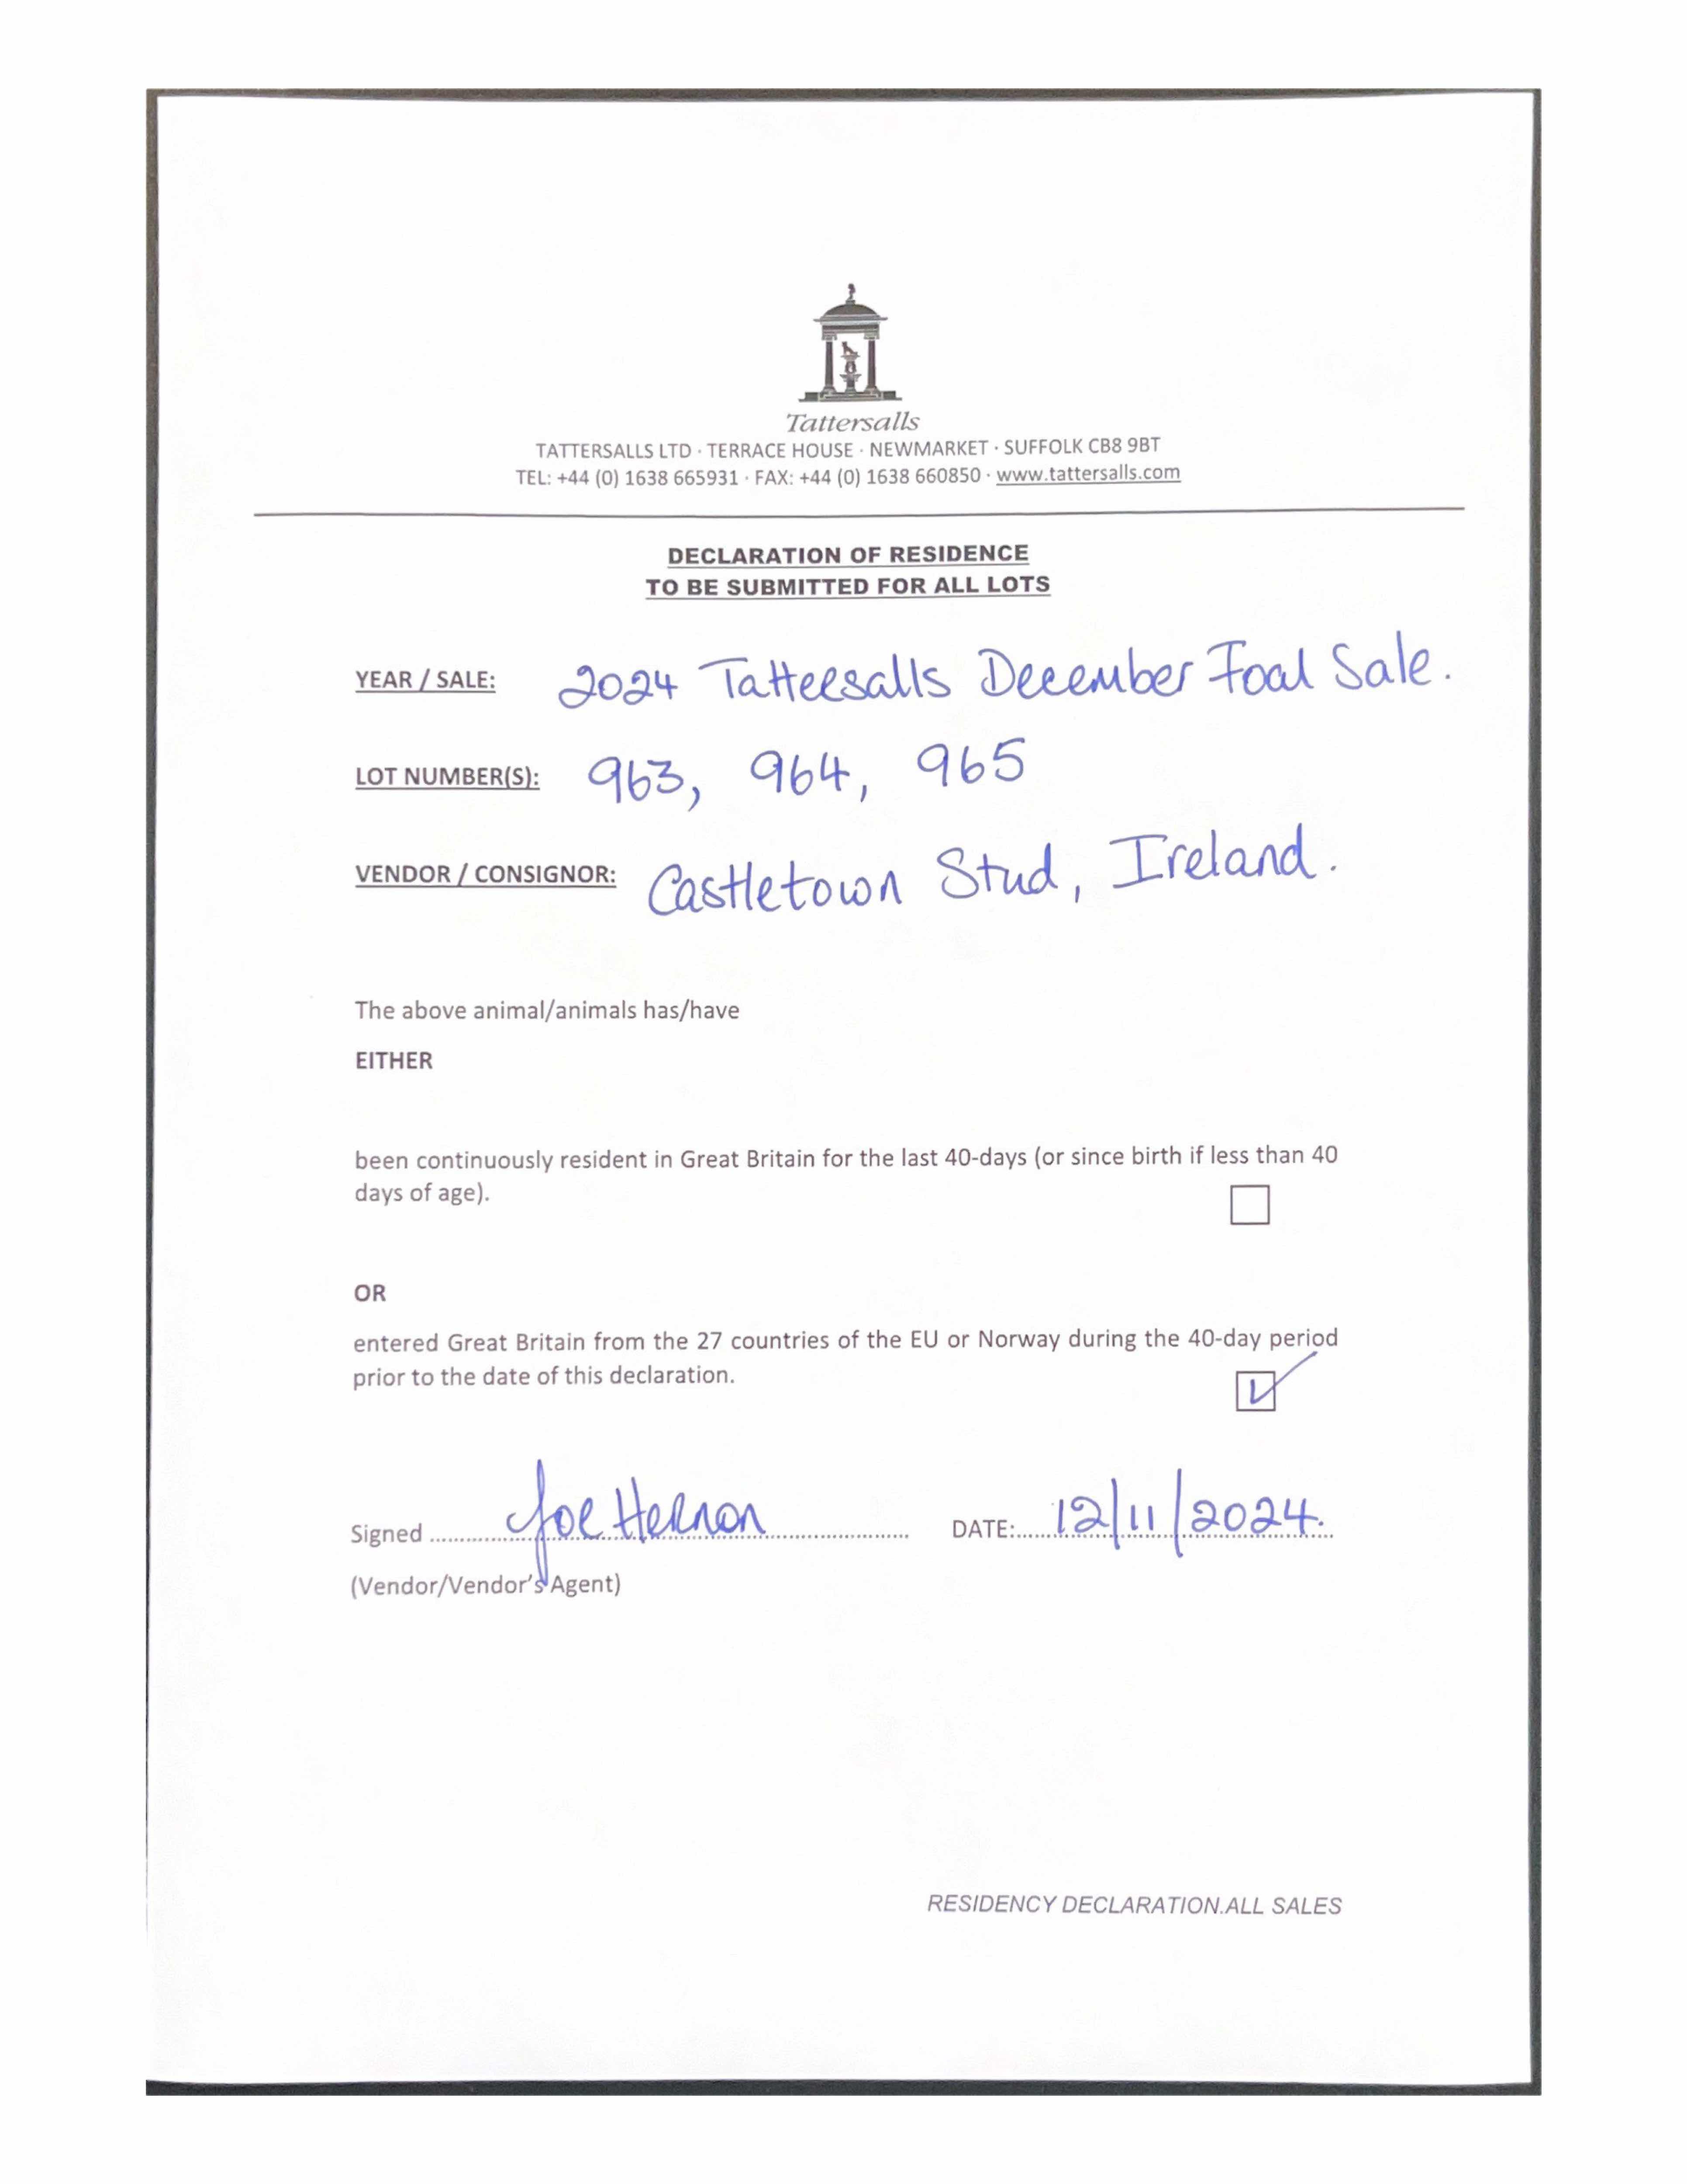 Tattersalls
TATTERSALLS LTD · TERRACE HOUSE · NEWMARKET · SUFFOLK CB8 9BT
TEL: +44 (0) 1638 665931 · FAX: +44 (0) 1638 660850 · www.tattersalls.com
DECLARATION OF RESIDENCE
TO BE SUBMITTED FOR ALL LOTS
YEAR / SALE: 2024 Tattersalls December Foal Sale.
LOT NUMBER(S): 963, 964, 965
VENDOR / CONSIGNOR: Castletown Stud, Ireland.
The above animal/animals has/have
EITHER
been continuously resident in Great Britain for the last 40-days (or since birth if less than 40
days of age).
OR
entered Great Britain from the 27 countries of the EU or Norway during the 40-day period
prior to the date of this declaration.
Signed Joe Hernon DATE: 12/11/2024.
(Vendor/Vendor's Agent)
RESIDENCY DECLARATION.ALL SALES